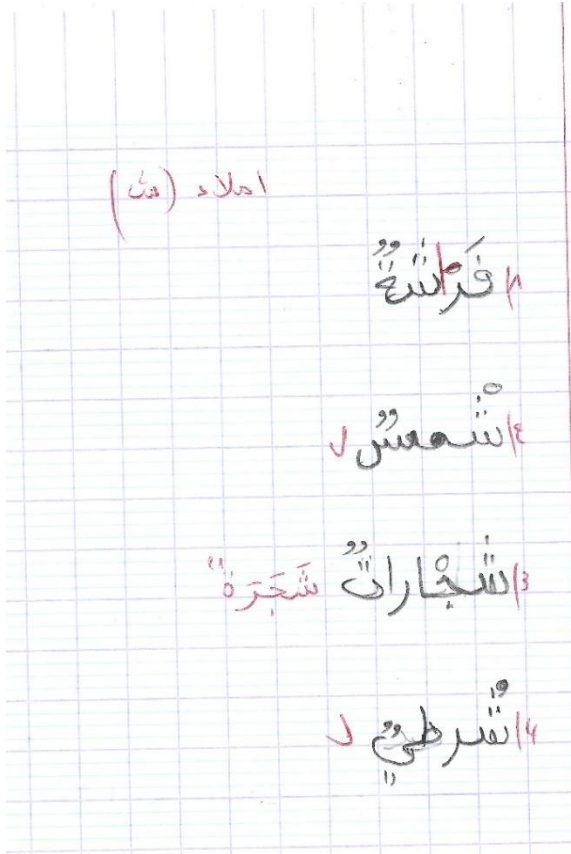 املاء (ش)
1/ فَراشَةٌ
2/ شْمسٌ ل
3/ شَجْاراتٌ شَجَرَةٌ
4/ شُرطيٌ ل